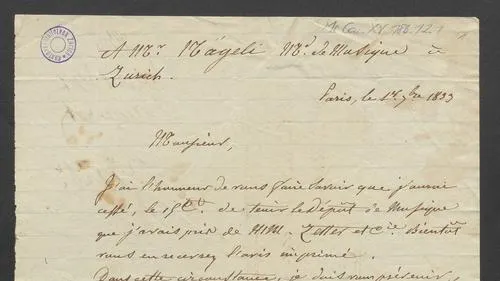 Ms Car XV 188.12.1
A Mr. Nägeli Md. de Musique à
Zurich.
Paris, le 1er 7bre 1833
Monsieur,
J'ai l'honneur de vous faire savoir que j'aurai
cessé, le 15 Ct. de tenir le dépôt de Musique
que j'avais pris de MM. Zetter et Cie. Bientôt
vous en recevrez l'avis imprimé.
Dans cette circonstance, je dois vous prévenir,